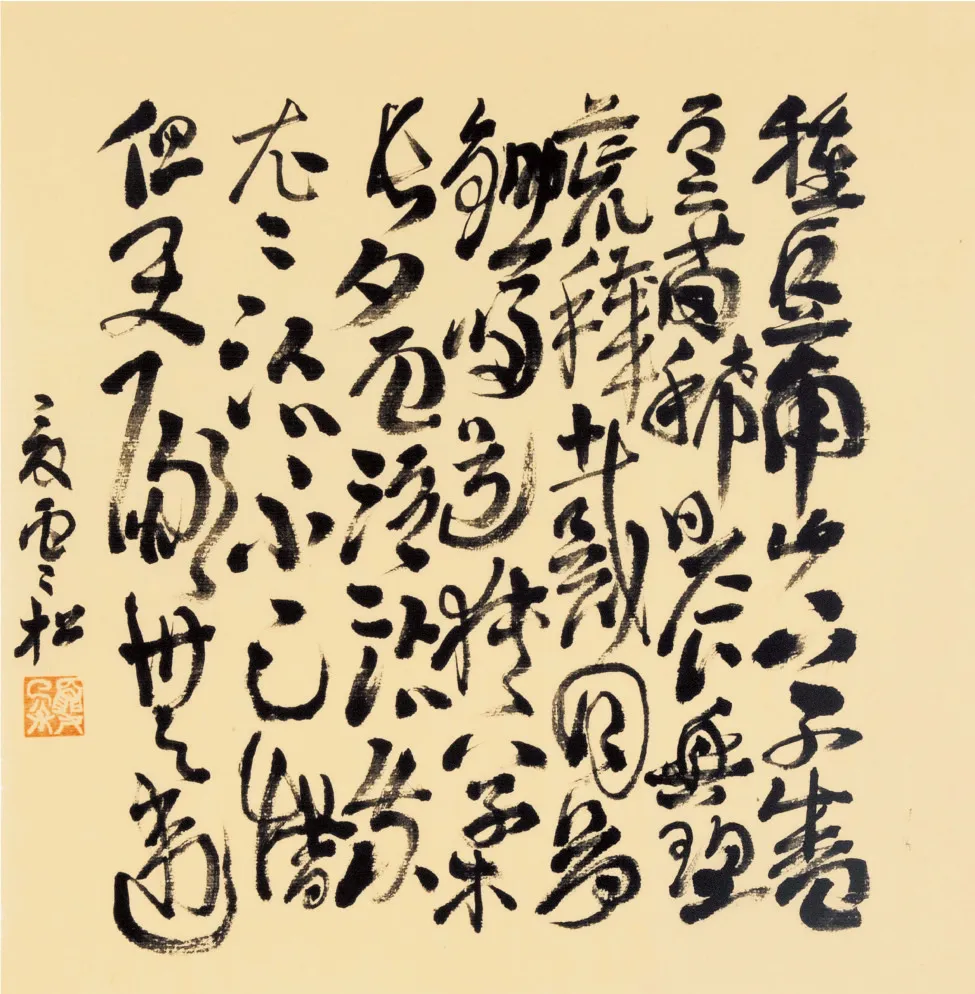 種豆南山下草盛
豆苗稀晨興理
荒穢帶月荷
鋤歸道狹草木
長夕露沾我衣
衣沾不足惜
但使願無違